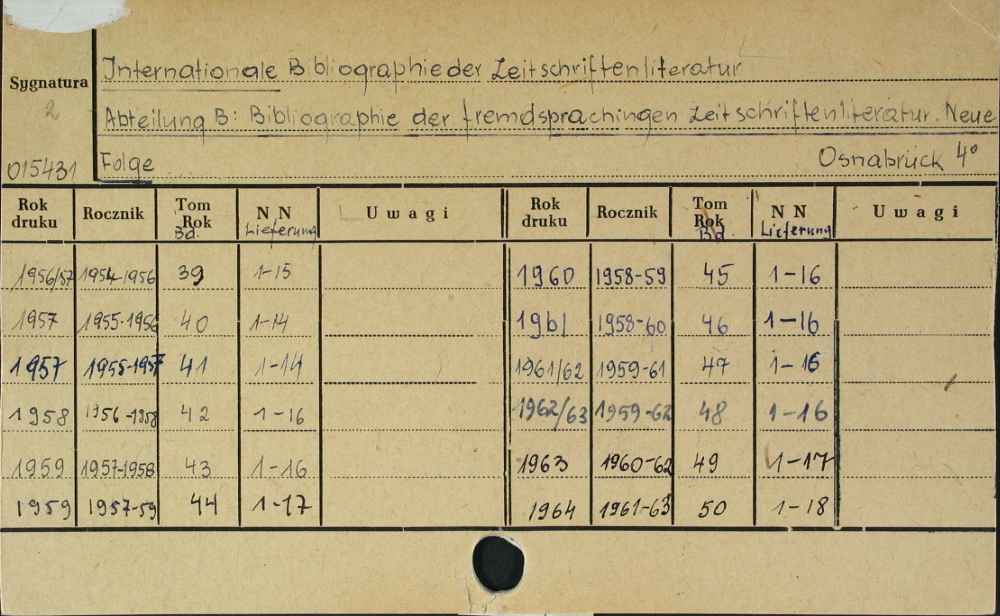 Internationale Bibliographie der Zeitschriftenliteratur
Sygnatura
2
Abteilung B: Bibliographie der fremdsprachingen Zeitschriftenliteratur. Neue
015431 Folge Osnabrück 4°
Rok druku Rocznik Tom Rok Bd. N N Lieferung Uwagi Rok druku Rocznik Tom Rok Bd. N N Lieferung Uwagi
1956/57 1954-1956 39 1-15 1960 1958-59 45 1-16
1957 1955-1956 40 1-14 1961 1958-60 46 1-16
1957 1955-1957 41 1-14 1961/62 1959-61 47 1-16
1958 1956-1958 42 1-16 1962/63 1959-62 48 1-16
1959 1957-1958 43 1-16 1963 1960-62 49 1-17
1959 1957-59 44 1-17 1964 1961-63 50 1-18